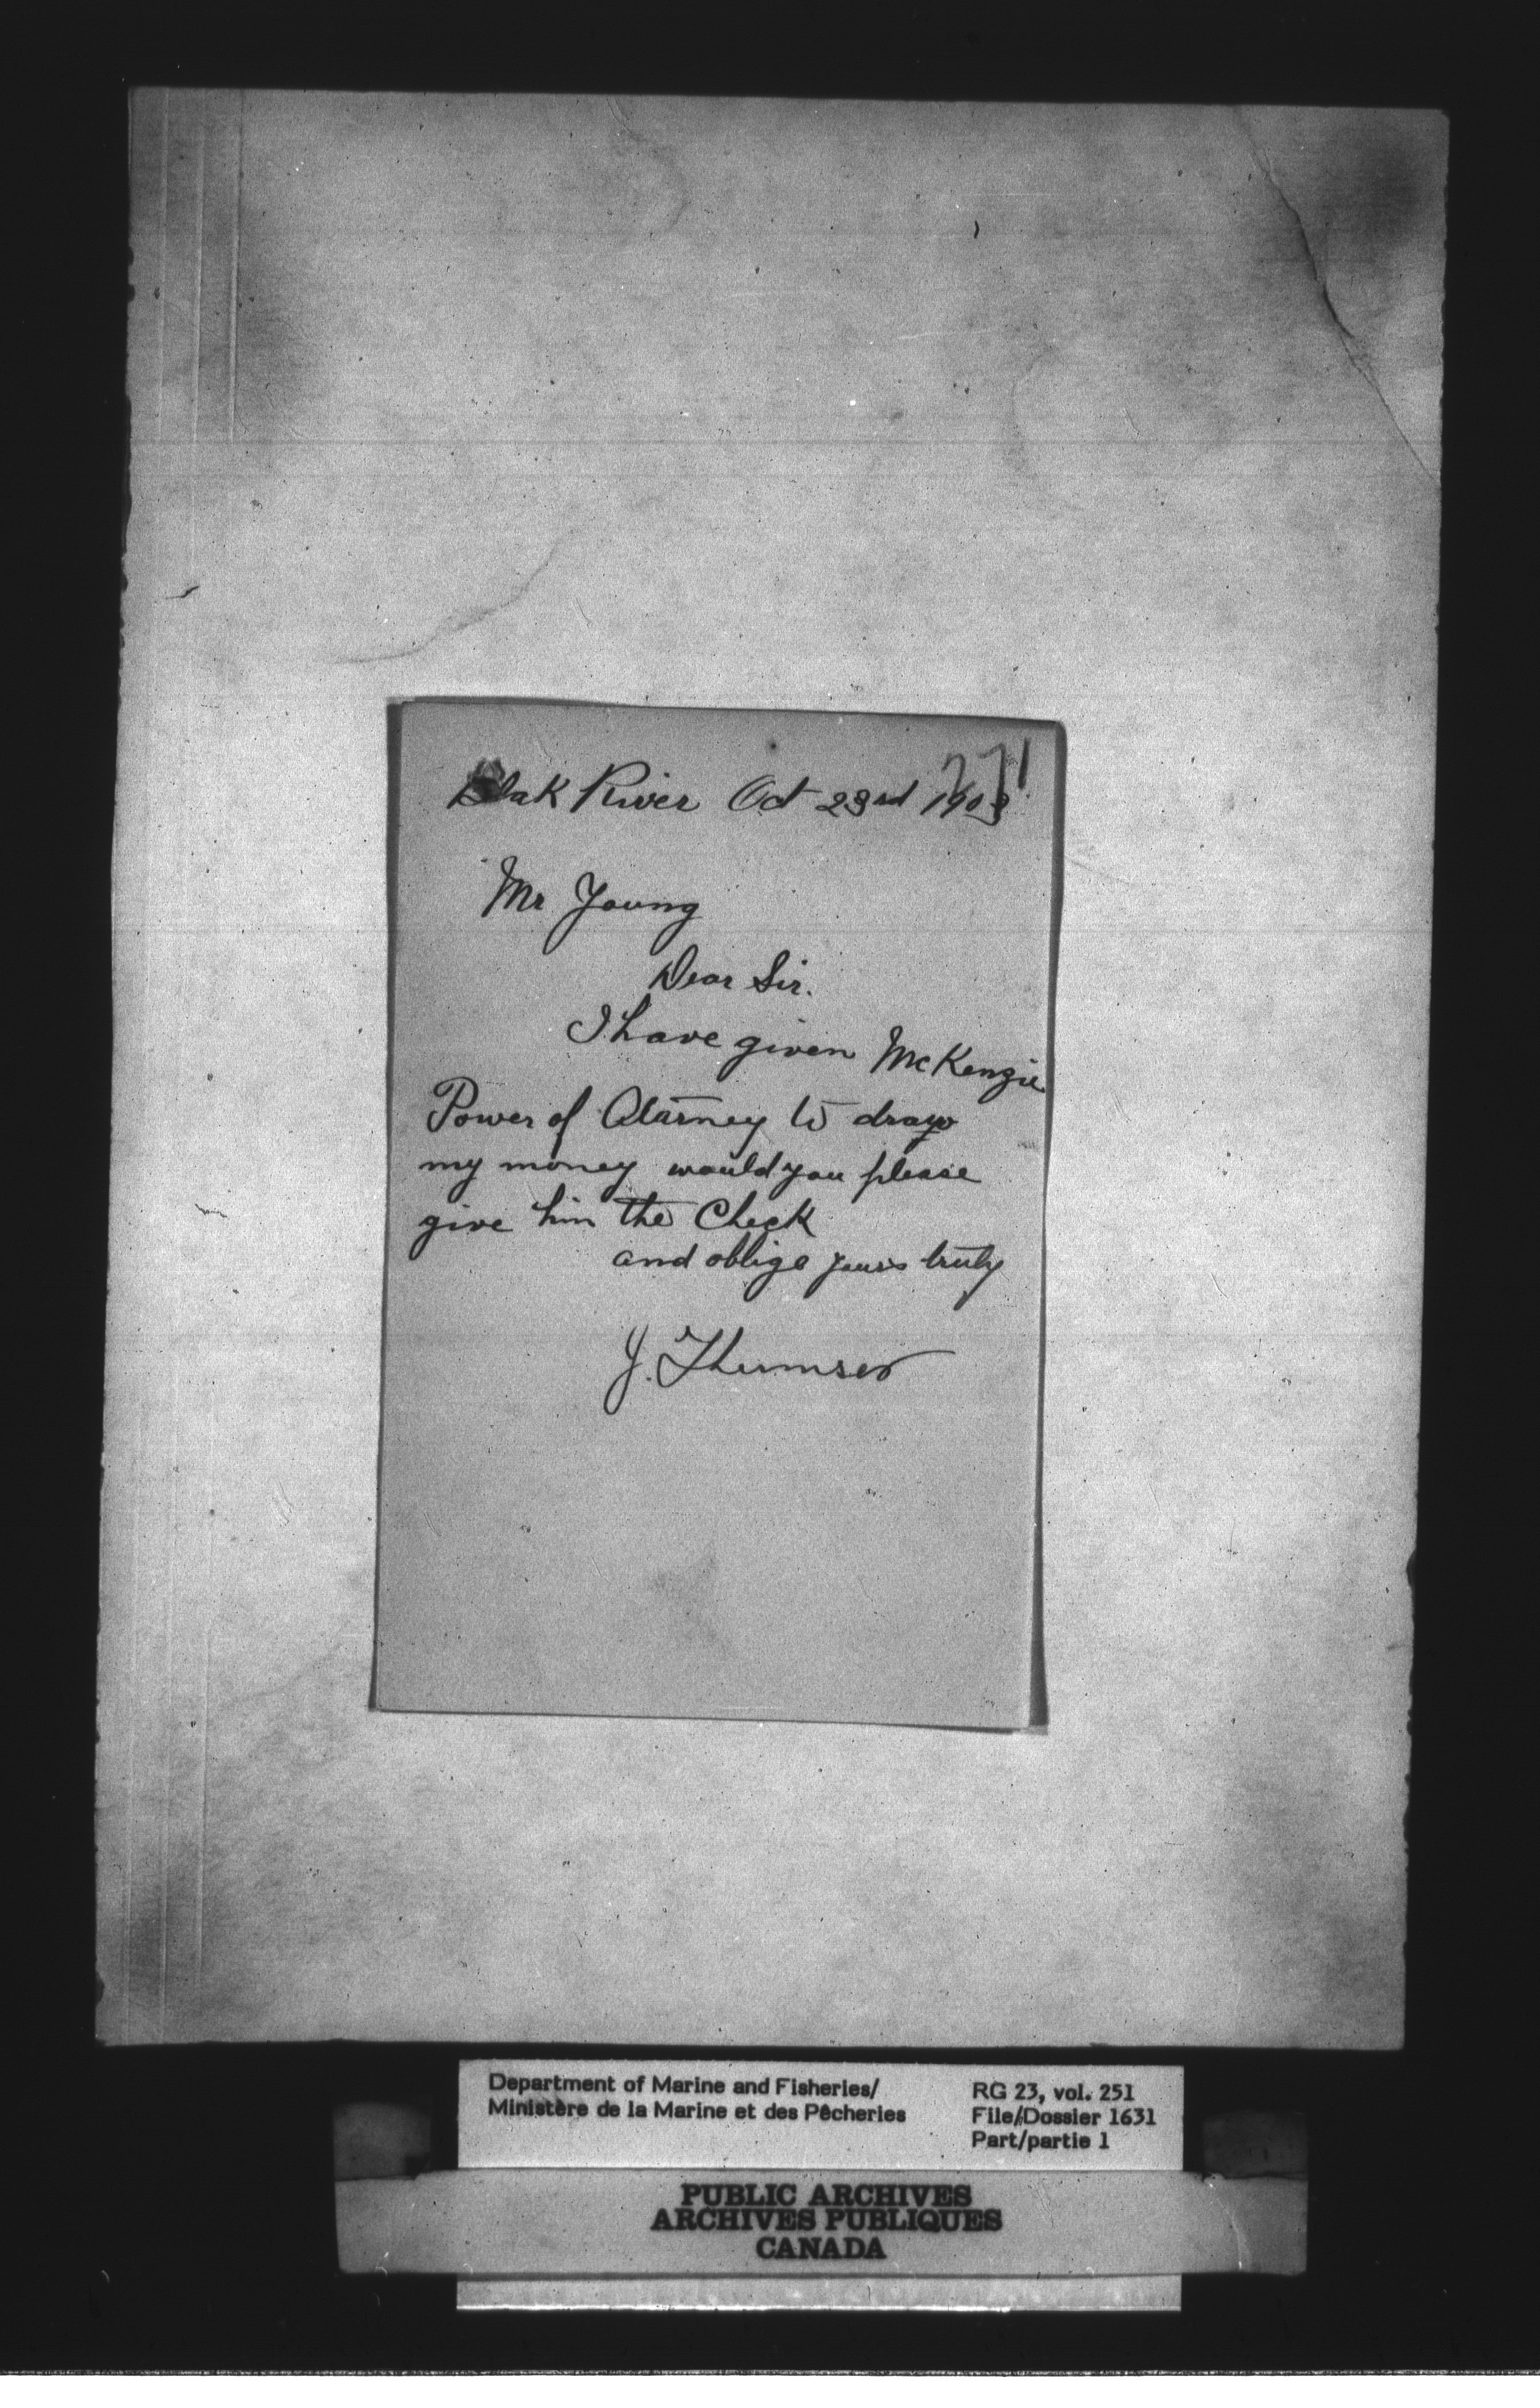 771
Blak River Oct 23rd 1903
Mr Young
Dear Sir.
I have given McKenzie
Power of Atarney to draw
my money would you please
give him the Check
and oblige yours truly
J.
Department of Marine and Fisheries/
Ministère de la Marine et des Pêcheries
RG 23, vol. 251
File/Dossier 1631
Part/partie 1
PUBLIC ARCHIVES
ARCHIVES PUBLIQUES
CANADA